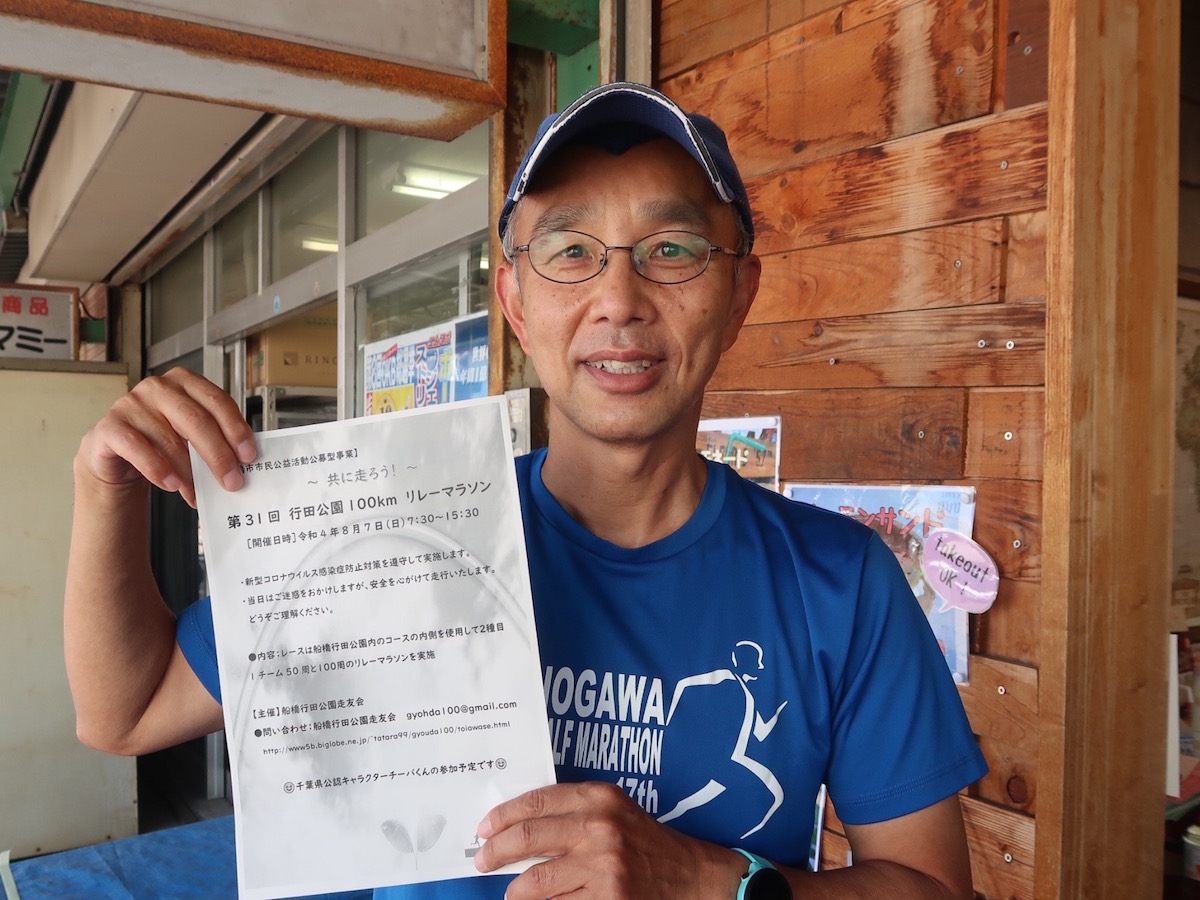 商品
マミー
RING
市市民公益活動公募型事業】
～ 共に走ろう! ～
第31回 行田公園100km リレーマラソン
[開催日時]令和4年8月7日(日)7:30～15:30
・新型コロナウイルス感染症防止対策を遵守して実施します。
・当日はご迷惑をおかけしますが、安全を心がけて走行いたします。
どうぞご理解ください。
●内容:レースは船橋行田公園内のコースの内側を使用して2種目
1チーム50周と100周のリレーマラソンを実施
【主催】船橋行田公園走友会
●問い合わせ:船橋行田公園走友会 gyohda100@gmail.com
http://www5b.biglobe.ne.jp/~tatara99/gyouda100/toiawase.html
☺千葉県公認キャラクターチーバくんの参加予定です☺
NOGAWA
HALF MARATHON
17th
ンサンド
Takeout
OK!